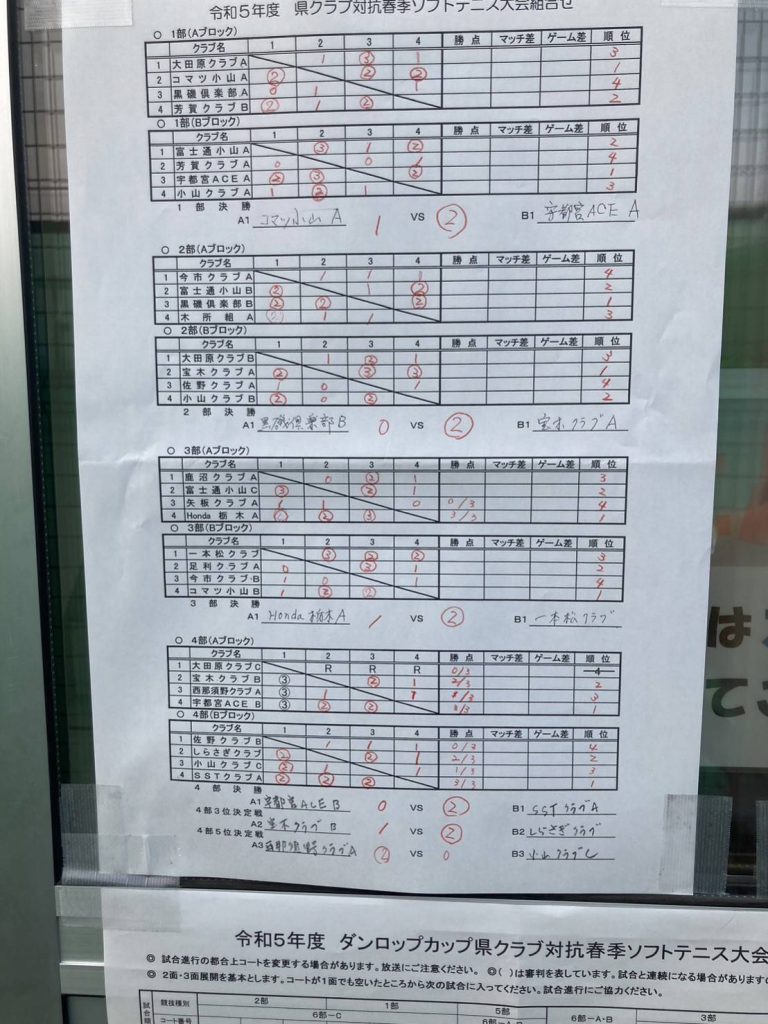 令和5年度 県クラブ対抗春季ソフトテニス大会組合せ
○ 1部(Aブロック)
クラブ名 1 2 3 4 勝点 マッチ差 ゲーム差 順位
1 大田原クラブA 1 ③ 1 3
2 コマツ小山A ② ② ② 1
3 黒磯倶楽部A 0 1 1 4
4 芳賀クラブB ② 1 ② 2
○ 1部(Bブロック)
クラブ名 1 2 3 4 勝点 マッチ差 ゲーム差 順位
1 富士通小山A ③ 1 ② 2
2 芳賀クラブA 0 0 1 4
3 宇都宮ACE A ② ③ ② 1
4 小山クラブA 1 ② 1 3
1部決勝
A1 コマツ小山 A 1 VS ② B1 宇都宮ACE A
○ 2部(Aブロック)
クラブ名 1 2 3 4 勝点 マッチ差 ゲーム差 順位
1 今市クラブA 1 1 1 4
2 富士通小山B ② 1 ② 2
3 黒磯倶楽部B ② ② ② 1
4 木所組A ② 1 1 3
○ 2部(Bブロック)
クラブ名 1 2 3 4 勝点 マッチ差 ゲーム差 順位
1 大田原クラブB 1 ② 1 3
2 宝木クラブA ② ③ ③ 1
3 佐野クラブA 1 0 1 4
4 小山クラブB ② 0 ② 2
2部決勝
A1 黒磯倶楽部B 0 VS ② B1 宝木クラブA
○ 3部(Aブロック)
クラブ名 1 2 3 4 勝点 マッチ差 ゲーム差 順位
1 鹿沼クラブA 0 ② 1 3
2 富士通小山C ③ ② 1 2
3 矢板クラブA 1 1 0 0/3 4
4 Honda栃木A ② ③ 3/3 1
○ 3部(Bブロック)
クラブ名 1 2 3 4 勝点 マッチ差 ゲーム差 順位
1 一本松クラブ ③ ② ② 3
2 足利クラブA 0 ③ 1 2
3 今市クラブB 1 0 1 4
4 コマツ小山B 1 ② ② 1
3部決勝
A1 Honda栃木A 1 VS ② B1 一本松クラブ
○ 4部(Aブロック)
クラブ名 1 2 3 4 勝点 マッチ差 ゲーム差 順位
1 大田原クラブC R R R 0/3 4
2 宝木クラブB ③ ② 1 2/3 2
3 西那須野クラブA ③ 1 1 3
4 宇都宮ACE B ③ ② ② 3/3 1
○ 4部(Bブロック)
クラブ名 1 2 3 4 勝点 マッチ差 ゲーム差 順位
1 佐野クラブB 1 1 1 0/3 4
2 しらさぎクラブ ② ② 1 2/3 2
3 小山クラブC ② 1 1 1/3 3
4 SSTクラブA ② ② ② 3/3 1
4部決勝
A1 宇都宮ACE B 0 VS ② B1 SSTクラブA
4部3位決定戦
A2 宝木クラブB 1 VS ② B2 しらさぎクラブ
4部5位決定戦
A3 西那須野クラブA ② VS 0 B3 小山クラブC
は
てこ
令和5年度 ダンロップカップ県クラブ対抗春季ソフトテニス大会
◎ 試合進行の都合上コートを変更する場合があります。放送にご注意ください。 ◎( )は審判を表しています。試合と連続になる場合がありますの
◎ 2面・3面展開を基本とします。コートが1面でも空いたところから次の試合に入ってください。試合進行にご協力ください。
試合 競技種別 2部 1部 5部 6部-A・B 3部
コート番号 6部-C 6部-A・B